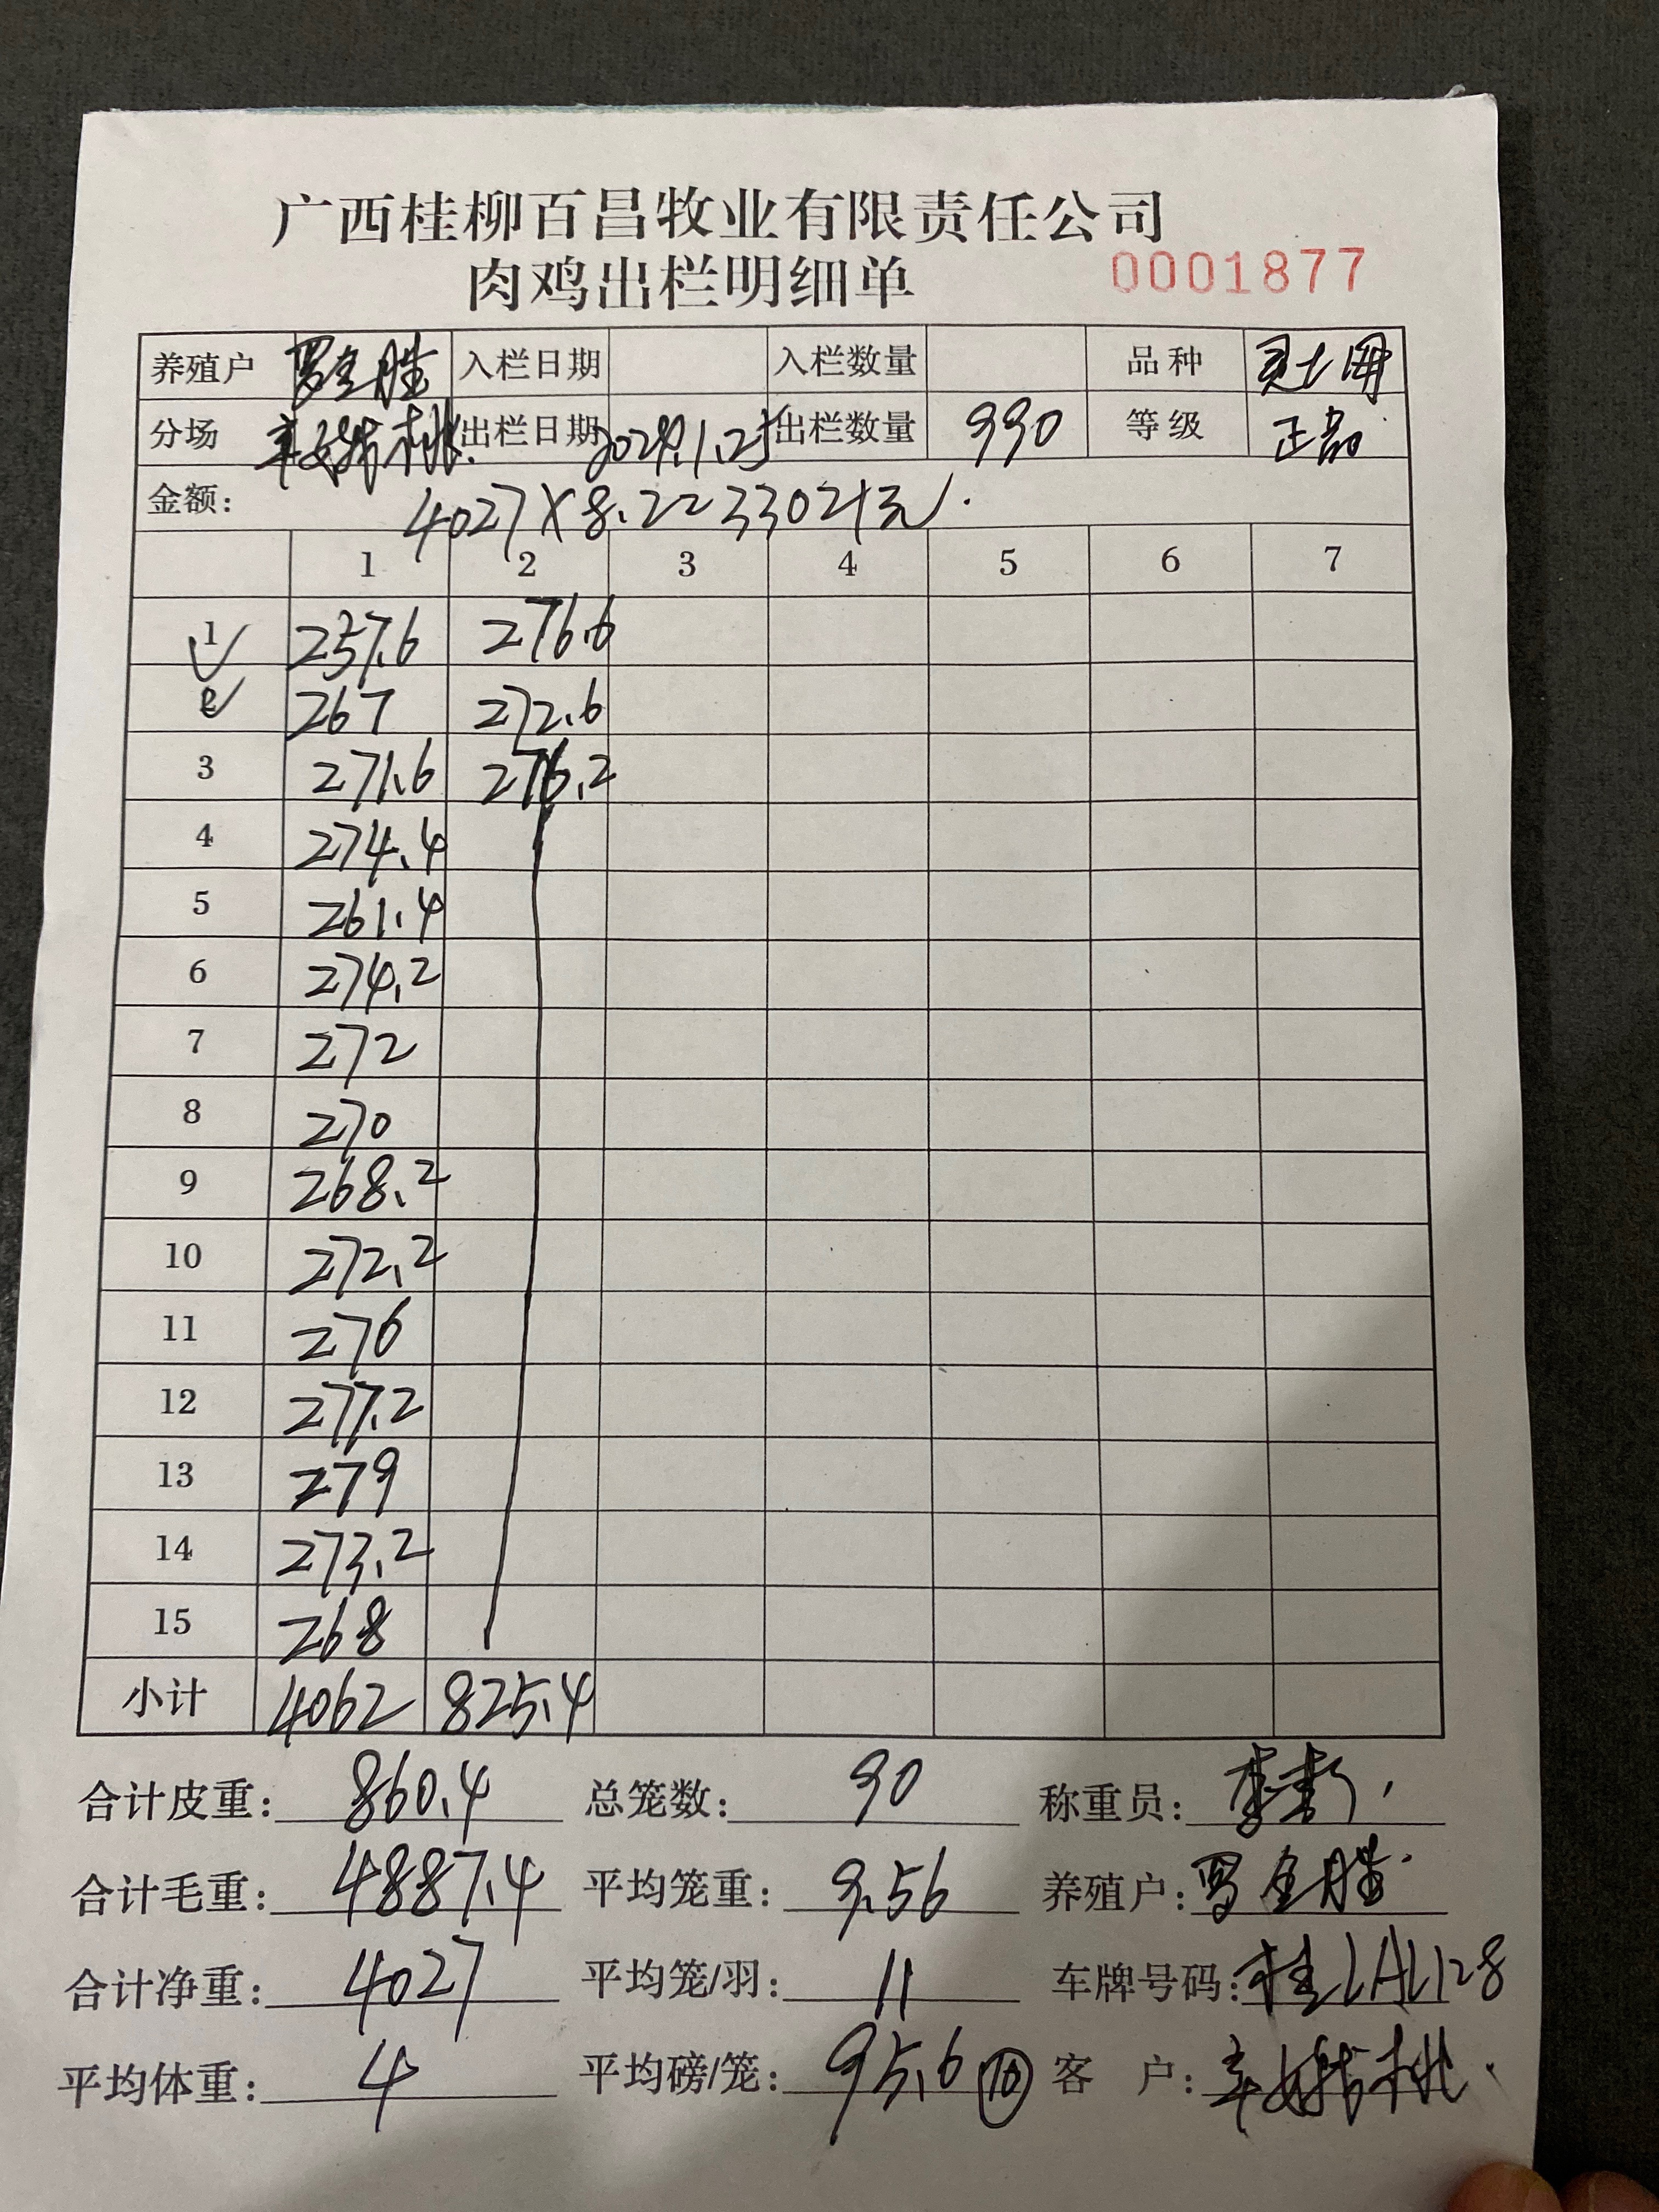 广西桂柳百昌牧业有限责任公司
肉鸡出栏明细单 0001877
养殖户 罗全胜 入栏日期 入栏数量 品种
分场 出栏日期 2024.1.25 出栏数量 990 等级 正品
金额: 4027X8.2 233021元.
1 2 3 4 5 6 7
1 257.6 276.6
2 267 272.6
3 271.6 276.2
4 274.4
5 261.4
6 274.2
7 272
8 270
9 268.2
10 272.2
11 276
12 277.2
13 279
14 273.2
15 268
小计 4062 825.4
合计皮重: 860.4 总笼数: 90 称重员:
合计毛重: 4887.4 平均笼重: 9.56 养殖户: 罗全胜
合计净重: 4027 平均笼/羽: 11 车牌号码: 桂LAL128
平均体重: 4 平均磅/笼: 95.6 10 客 户: